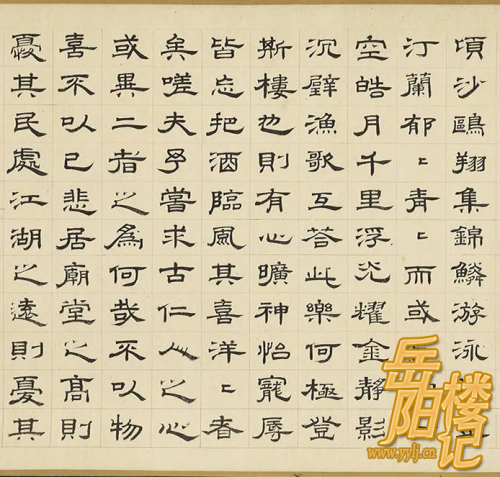 頃沙鷗翔集錦鱗游泳
汀蘭郁〻青〻而或
空皓月千里浮光耀金靜影
沉璧漁歌互答此樂何極登
斯樓也則有心曠神怡寵辱
皆忘把酒臨風其喜洋〻者
矣嗟夫予嘗求古仁人之心
或異二者之為何哉不以物
喜不以己悲居廟堂之高則
憂其民處江湖之遠則憂其
岳阳楼记
www.yylj.cn